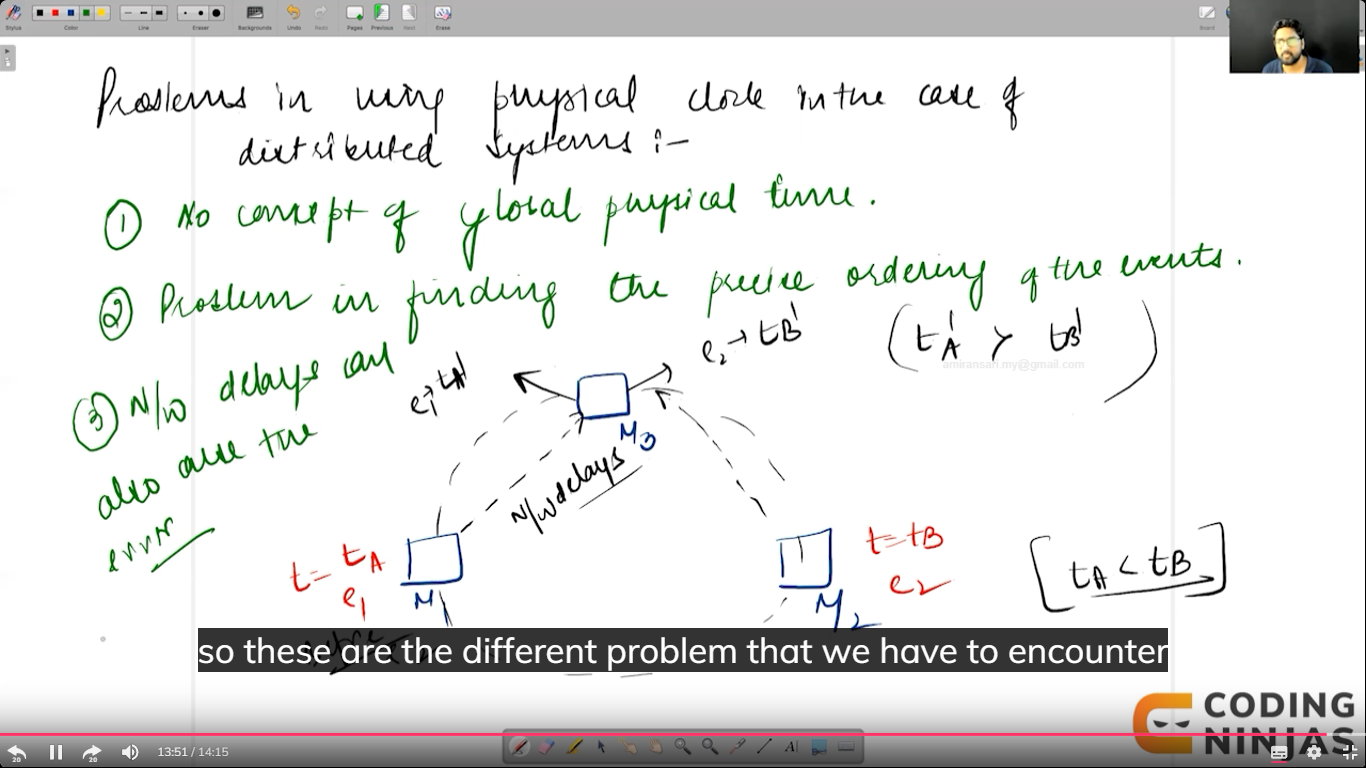 Stylus
Color
Line
Eraser
Backgrounds
Undo
Redo
Pages
Previous
Next
Erase
Board
Problems in using physical clock in the case of
distributed systems :-
① No concept of global physical time.
② Problem in finding the precise ordering of the events.
③ N/W delays can
also cause the
error
e1 → tA'
e2 → tB'
(tA' > tB')
amiransari.my@gmail.com
M3
N/W delays
t = tA
e1
M
t = tB
e2
M2
[tA < tB]
so these are the different problem that we have to encounter
CODING
NINJAS
20
20
13:51 / 14:15